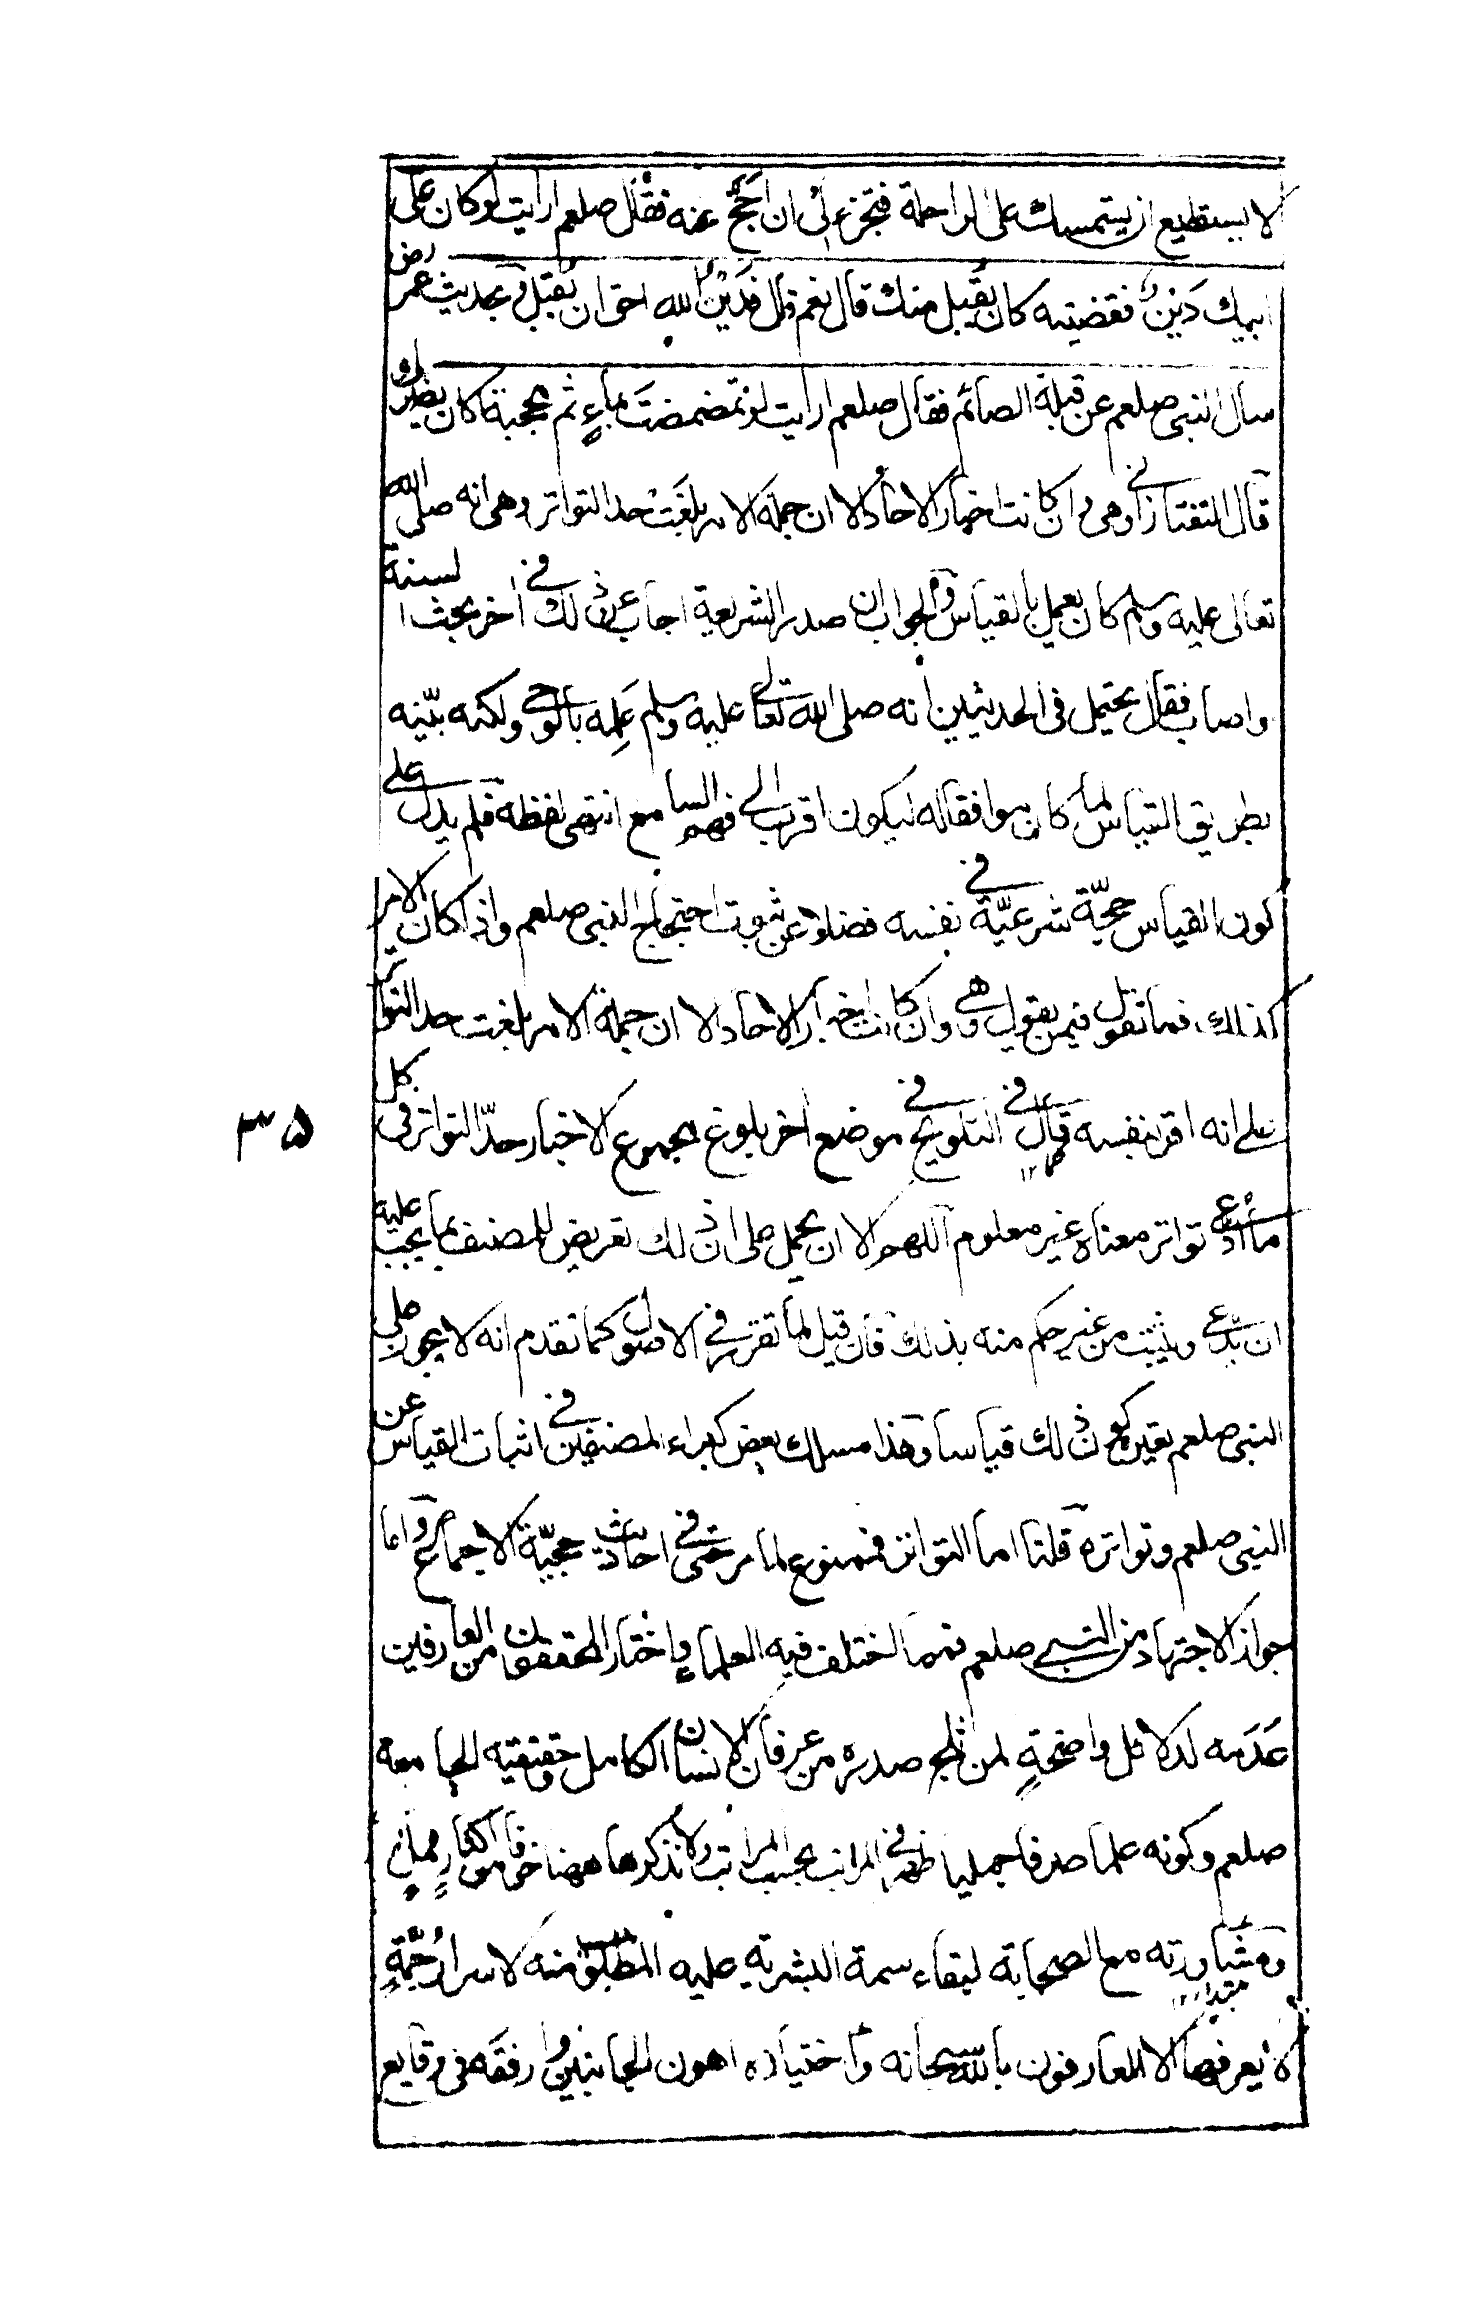 لا يستطيع ان يستمسك على الراحلة فتجزءلى ان احج عنه فقال صلعم ارايت لو كان على
ابيك دَين فقضيته كان يُقبل منك قال نعم قال فدَيْن الله احق ان يُقبل وبحديث عمر رض
سال النبى صلعم عن قبلة الصائم فقال صلعم ارايت لو تمضمضتَ بماءٍ ثم مججبة كان يضرك و
قال التفتازانى وهى وان كانت اخبار الاحاد الا ان جملة الامر بلغَت حد التواتر وهى انه صلى الله
تعالى عليه وسلم كان يعمل بالقياس والجواب ان صدر الشريعة اجاب عن ذلك فى اخر بحث السنة
واصاب فقال يحتمل فى الحديثين انه صلى الله تعالى عليه وسلم عَلِمه بالوحى ولكنه بيّنه
بطريق القياس لما كان موافقا له ليكون اقرب الى فهم السامع انتهى لفظه فلم يدل على
كون القياس حجيّة شرعيّة فى نفسه فضلا عن ثبوت احتجاج النبى صلعم واذا كان الامر
كذلك فما تقول فيمن يقول وهى وان كانت اخبار الاحاد الا ان جملة الامر بلغت حد التواتر
على انه اقر بنفسه فى التلويح فى موضع اخر بلوغ مجموع الاخبار حدّ التواتر فى كل
ما ادعى تواتر معناه غير معلوم اللهم الا ان يحمل على ان ذلك تعريض للمصنف بما يجب عليه
ان يدّعى ويثبت من غير حكم منه بذلك فان قيل لما تقرر فى الاصول كما تقدم انه لا يجوز على
النبى صلعم يقين كون ذلك قياسا وهذا مسلك بعض كبراء المصنفين فى اثبات القياس عن
النبى صلعم وتواتره قلنا اما التواتر فممنوع لما مر حتى فى احاديث حجيّة الاجماع واما
جواز الاجتهاد من النبى صلعم فمما اختلف فيه العلماء واختار المحققون من العارفين
عَدَمه لدلائل واضحةٍ لمن ثلج صدره من عرفان الانسان الكامل وحقيقته الجامعة
صلعم وكونه علما صرفا جمليا ظهر فى المراتب بحسب المراتب ولا نذكرها ههنا خوفا من اكثار مملٍ
ومشاورته مع الصحابة لبقاء سمة البشرية عليه المطلق منه لاسرار جُمّةٍ
لا يعرفها الا العارفون بالله سبحانه واختياره اهون الجانبين وارفقه فى وقايع
٣٥